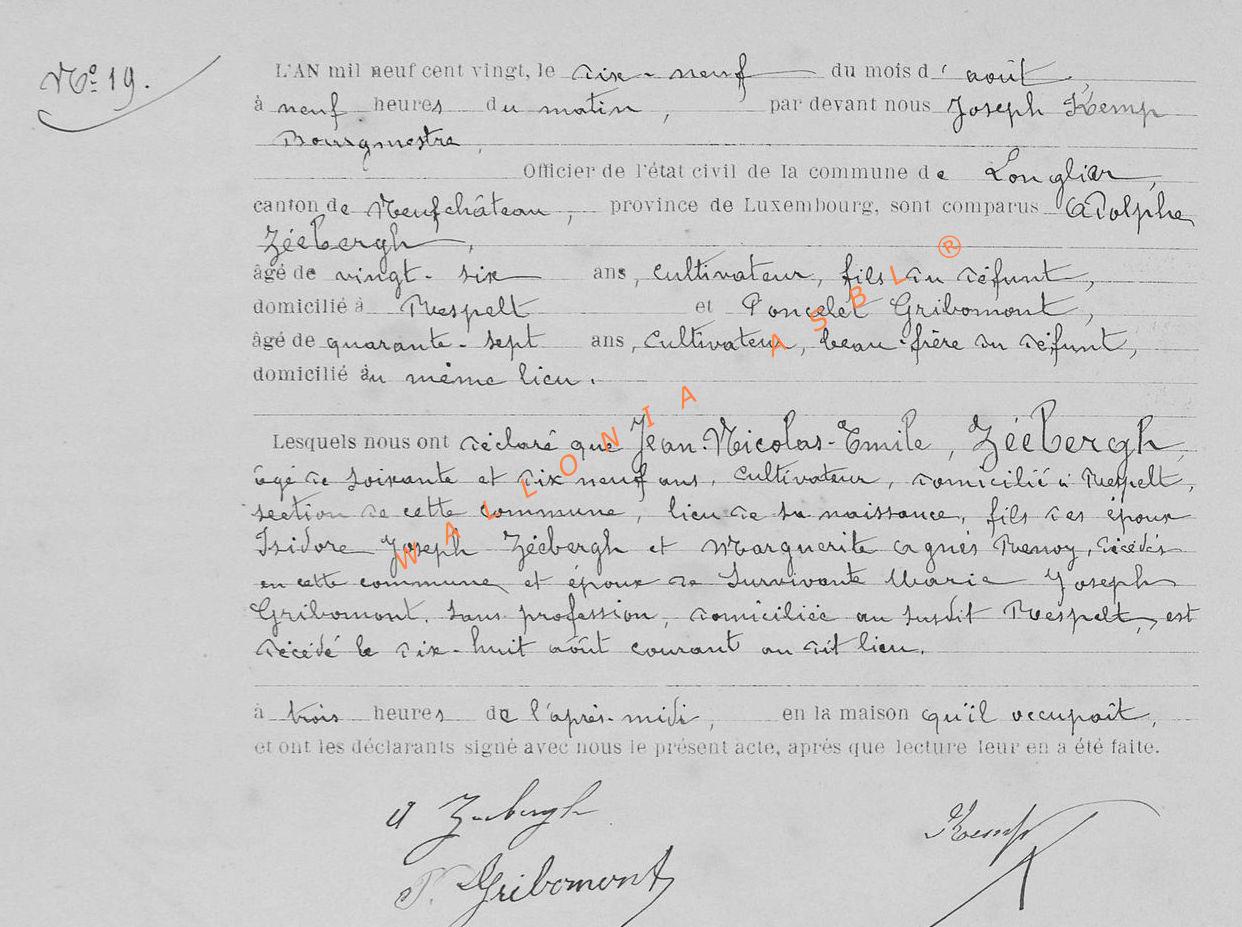 No 19.
L'AN mil neuf cent vingt, le dix-neuf du mois d'août,
à neuf heures du matin, par devant nous Joseph Kemp
Bourgmestre,
Officier de l'état civil de la commune de Longlier,
canton de Neufchâteau, province de Luxembourg, sont comparus Adolphe
Zéebergh,
âgé de vingt-six ans, cultivateur, fils du défunt,
domicilié à Respelt et Poncelet Gribomont,
âgé de quarante-sept ans, cultivateur, beau-frère du défunt,
domicilié au même lieu.
Lesquels nous ont déclaré que Jean-Nicolas-Emile, Zéebergh,
âgé de soixante et dix neuf ans, cultivateur, domicilié à Respelt,
section de cette commune, lieu de sa naissance, fils des époux
Isidore Joseph Zéebergh et Marguerite Agnès Renoy, décédés
en cette commune et époux de survivante Marie Joseph
Gribomont, sans profession, domiciliée au susdit Respelt, est
décédé le dix-huit août courant au dit lieu.
à trois heures de l'après-midi, en la maison qu'il occupait,
et ont les déclarants signé avec nous le présent acte, après que lecture leur en a été faite.
A Zeebergh
Kemp
P. Gribomont
WALLONIA ASBL ®